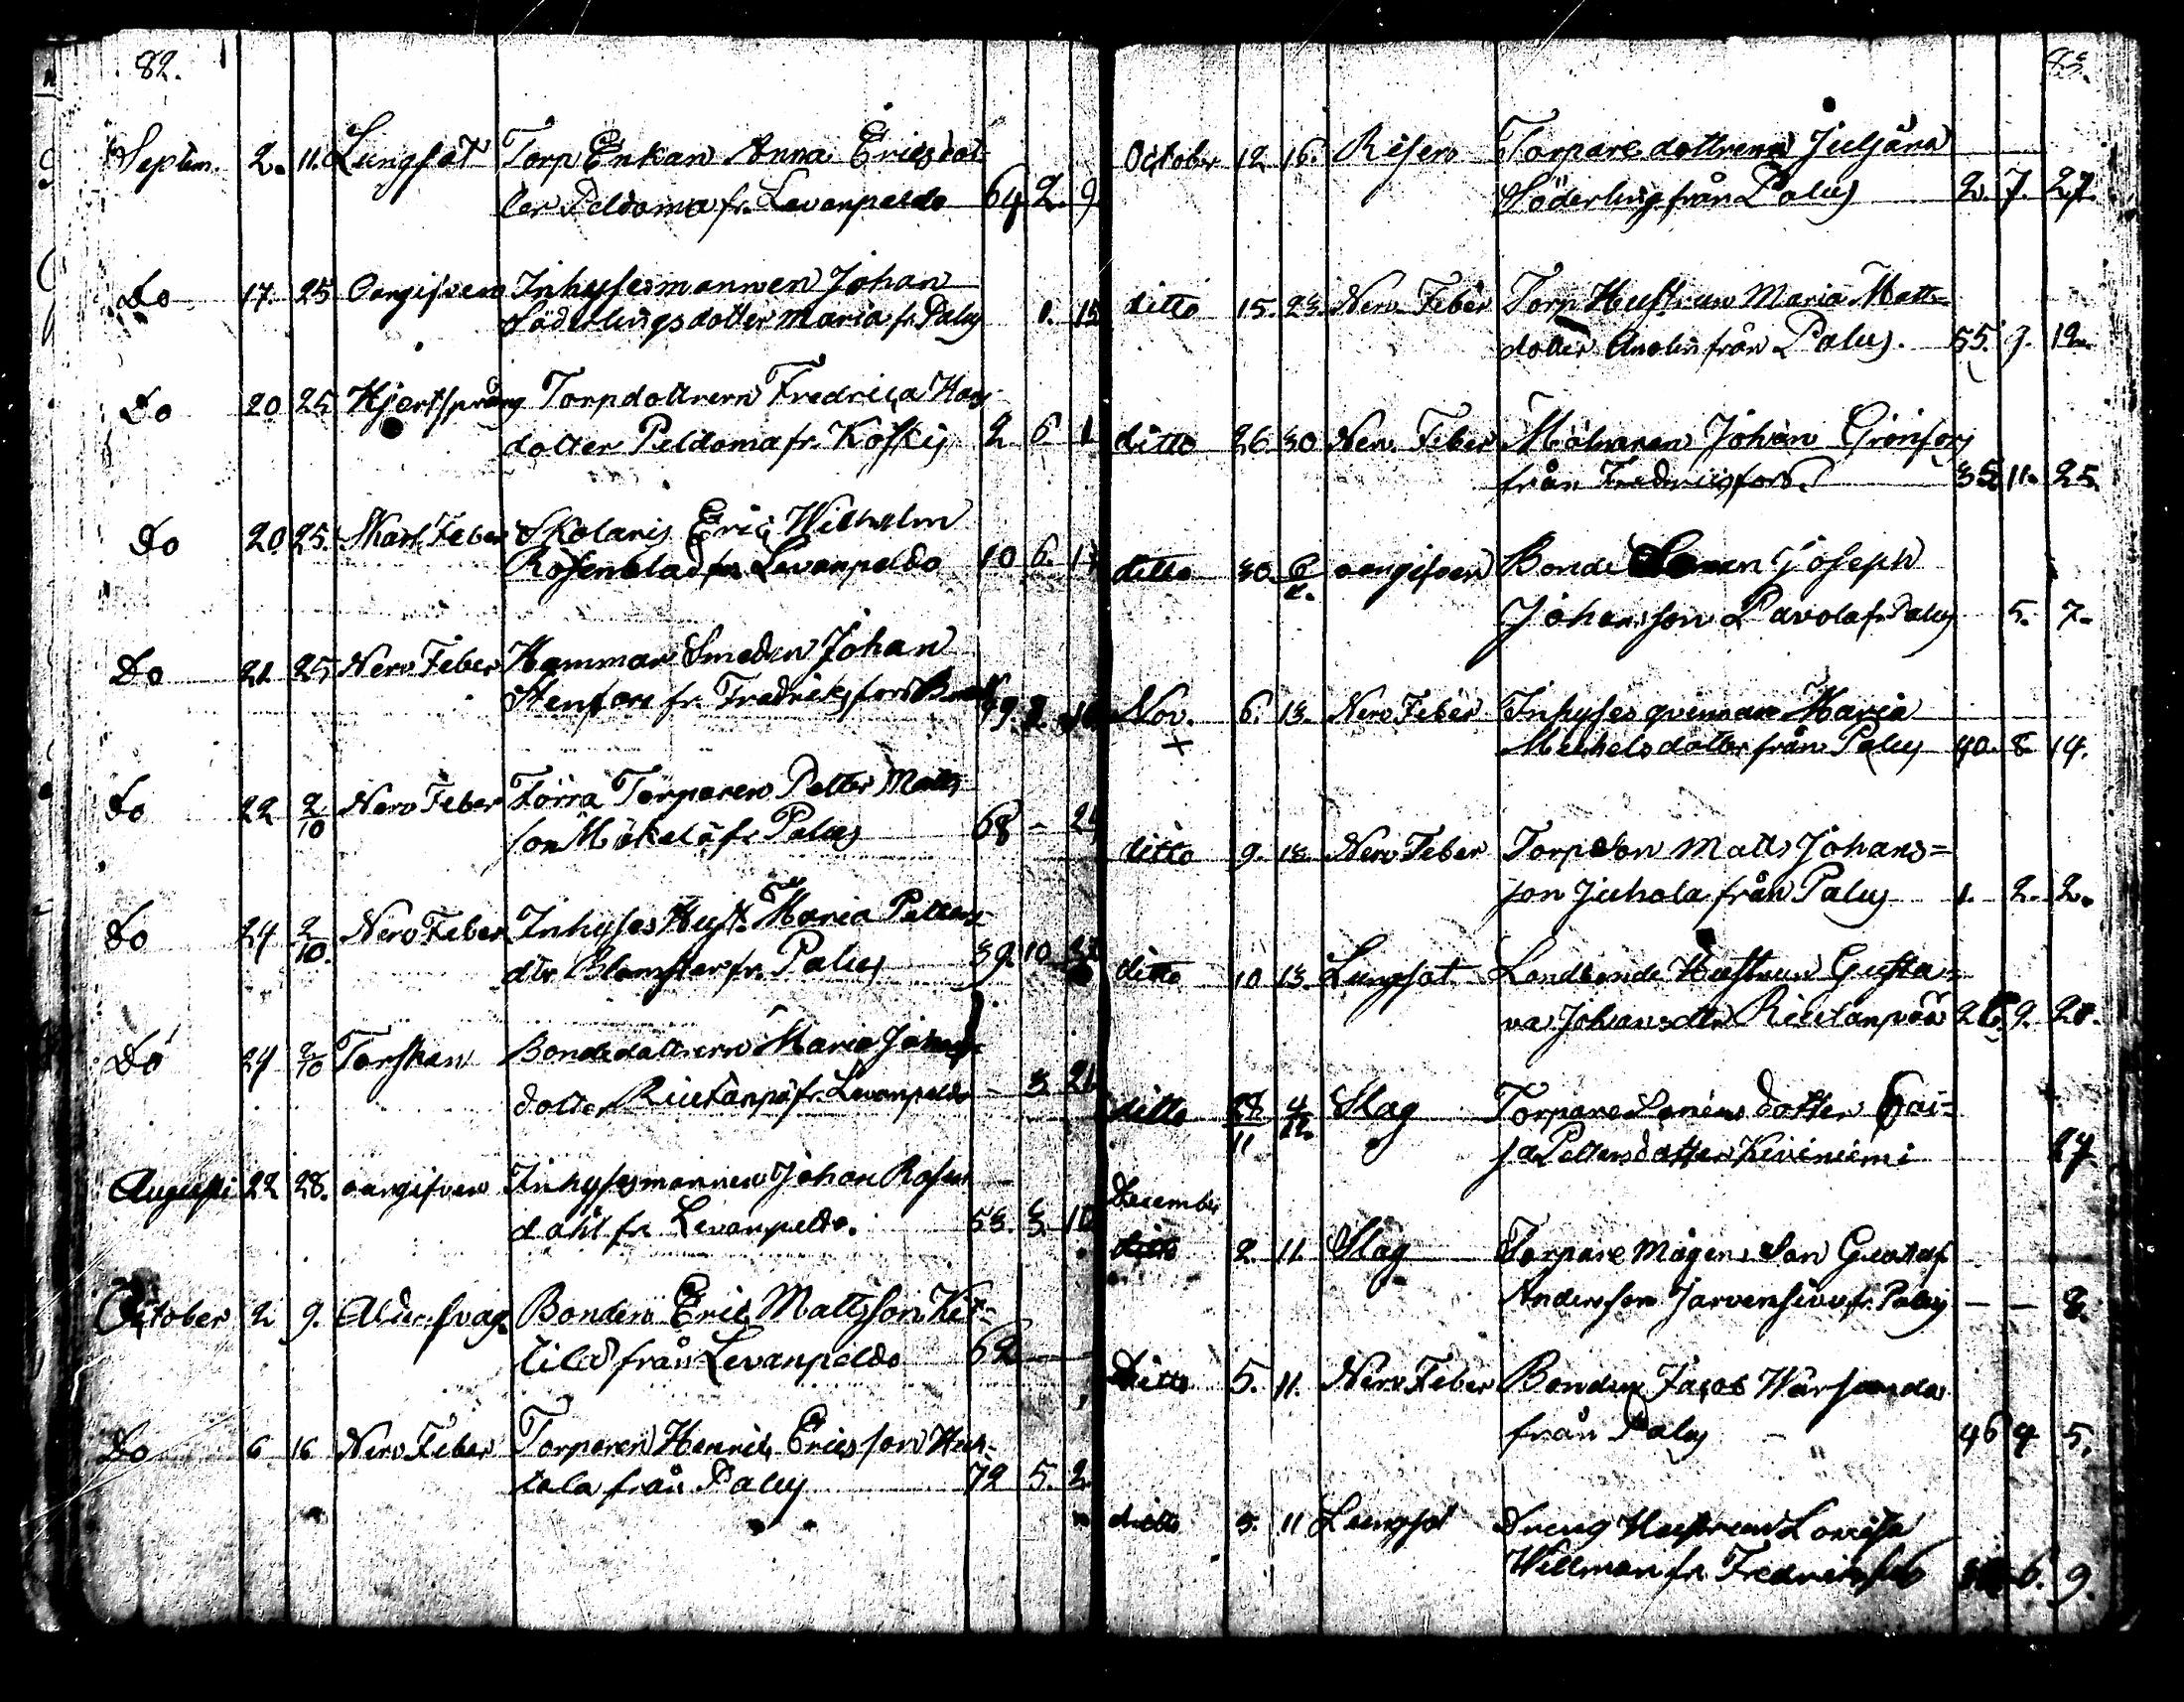 82.
Septem. 2. 11. Lungsot Torp Enkan Anna Ericsdot-
ter Peldoma fr. Levanpeldo 64 2. 9
Do 17. 25 Oangifven Inhysesmannen Johan
Söderlings dotter Maria fr. Palus 1. 15
Do 20 25 Hjertsprång Torpdottren Fredrica Hans
dotter Peldoma fr. Koskis 2. 6 1
Do 20 25. Skarl. Feber Skolaris Eric Wilhelm
Rosenblad fr. Levanpeldo 10 6. 17
Do 21 25 Nerv Feber Hammar Smeden Johan
Stenfors fr. Fredriksfors 49.
Do 22 2/10 Nerv Feber Förra Torparen Petter Matts
son Mickelä fr. Palus 68 –
Do 24 2/10. Nerv Feber Inhyses Hust. Maria Petters
dtr Blomster fr. Palus 39. 10
Do 24 2/10 Torsken Bondedottren Maria
dotter Riutanpä fr. Levanpeldo – 3 21
Augusti 22 28. oangifven Inhysesmannen Johan Rosen
dahl fr. Levanpeldo. 53. 3. 10
October 2. 9. Ålder. svag. Bonden Eric Mattsson Kit-
tilä från Levanpeldo 62 – –
Do 6 16 Nerv Feber Torparen Henric Ericsson Huh-
tala från Palus 72 5. 2
83.
October 12 16. Risern Torpare dottren Juljana
Söderling från Palus 2. 7. 27.
ditto 15. 23. Nerv Feber Torp Hustrun Maria Matts-
dotter Anolin från Palus. 55. 9. 12.
ditto 26. 30 Nerv. Feber Mölnaren Johan Grönfors
från Fredricsfors. 35. 11. 25.
ditto 30. 6/11. oangifven Bonde Sonen Joseph
Johansson Pavola fr. Palus 5. 7.
Nov. 6. 13. Nerv Feber Inhyses qvinnan Maria
+ Michelsdotter från Palus 40. 8 14.
ditto 9. 13. Nerv Feber Torp Son Matts Johans=
son Juhola från Palus 1. 2. 2.
ditto 10 13. Lungsot Landbonde Hustrun Gusta=
va Johansdtr Riutanpää 26. 9. 20.
ditto 27/11 4/12. Slag Torpare Sonens dotter Cai=
sa Pettersdotter Kiviniemi 27
December
ditto 2. 11. Slag Torpare Mågens Son Gustaf
Andersson Jarvensivu fr. Palus – – 3.
Ditto 5. 11. Nerv Feber Bonden Jacob Wärjonda
från Palus 46 4 5.
ditto 5. 11 Lungsot Dreng Hustrun Lovisa
Willman fr. Fredricsfors 6. 9.